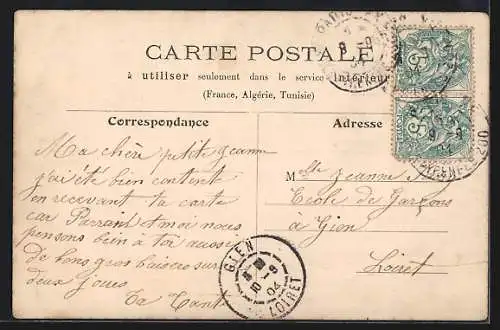 CARTE POSTALE
à utiliser seulement dans le service intérieur
(France, Algérie, Tunisie)
Correspondance
Adresse
Ma chère petite Jeanne
j'ai été bien content
en recevant ta carte
car Parrain et moi nous
pensons bien à toi aussi
de bons gros baisers sur
deux joues
Ta Tante
Mlle Jeanne
Ecole de Garçons
à Gien
Loiret
GIEN
10 - 9
04
LOIRET